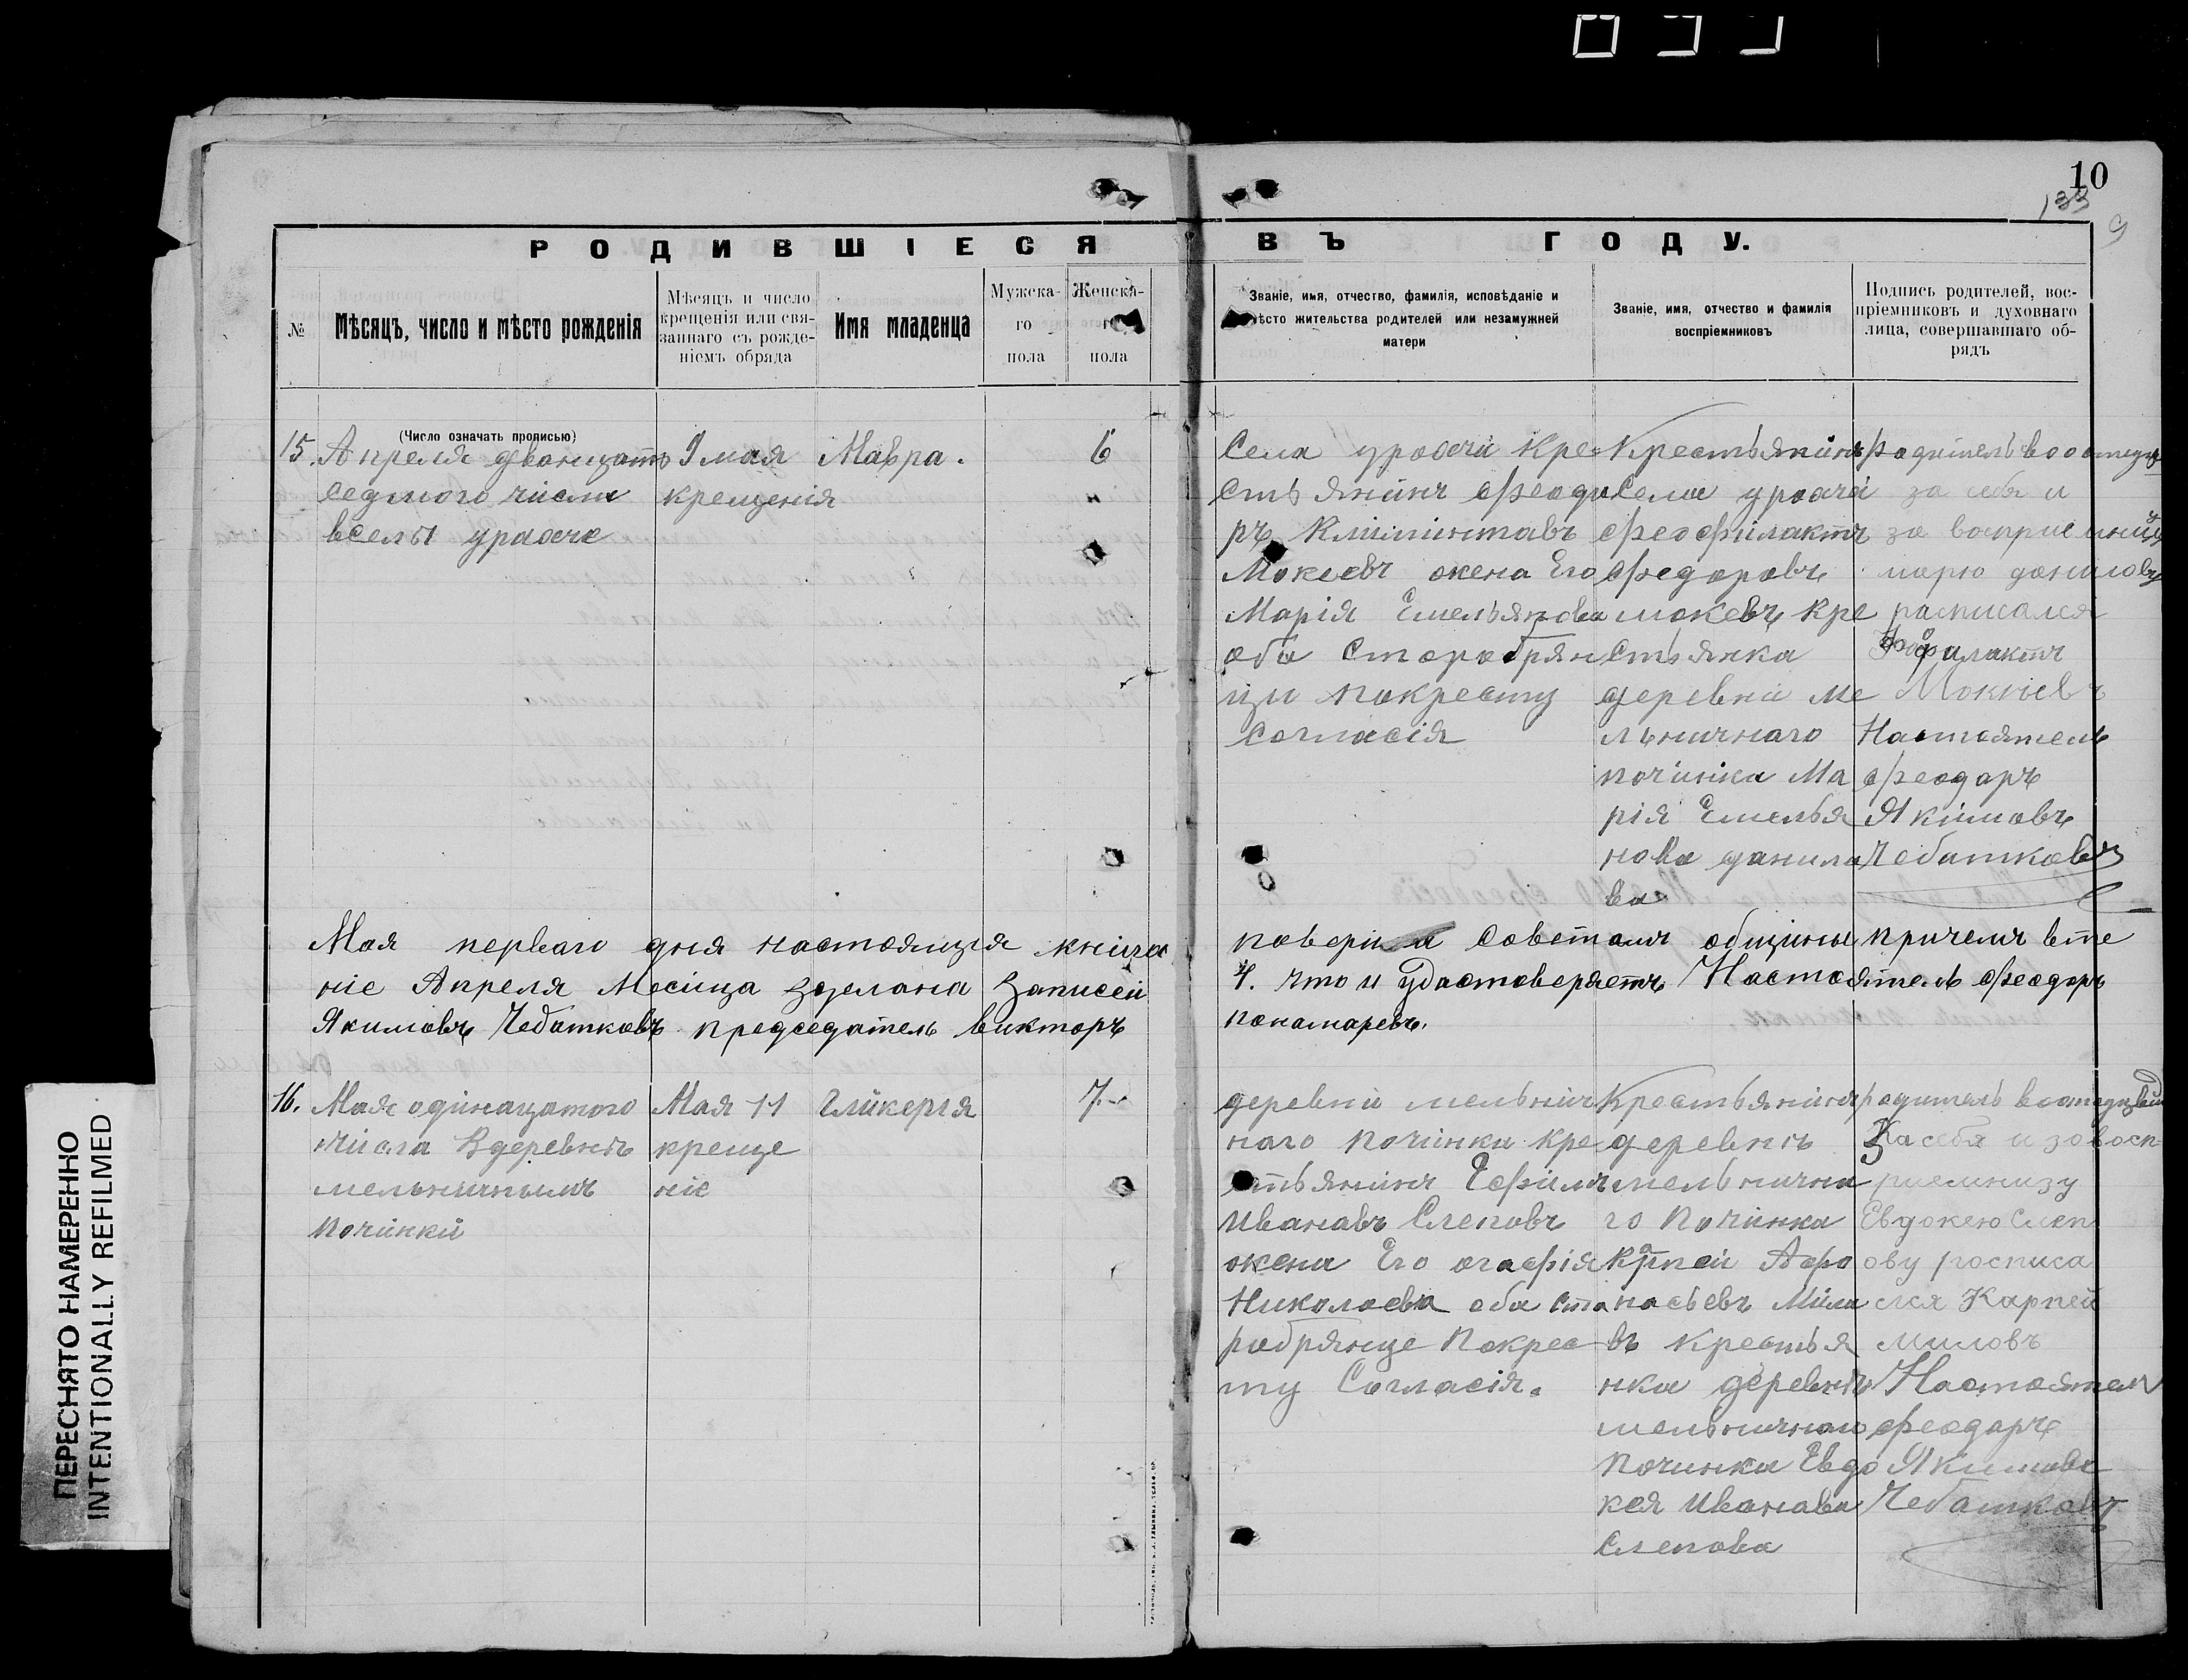 10
133
9
РОДИВШІЕСЯ ВЪ ГОДУ.
№
Мѣсяцъ, число и мѣсто рожденія
Мѣсяцъ и число
крещенія или свя-
заннаго съ рожде-
ніемъ обряда
Имя младенца
Мужска-
го
пола
Женска-
го
пола
Званіе, имя, отчество, фамилія, исповѣданіе и
мѣсто жительства родителей или незамужней
матери
Званіе, имя, отчество и фамилія
воспріемниковъ
Подпись родителей, вос-
пріемниковъ и духовнаго
лица, совершавшаго об-
рядъ
(Число означать прописью)
15.
Апреля дванцать
седмого числа
вселы
9 мая
крещенія
Мавра.
6
Села кре-
стьянинъ Феодо
ръ
Мокеевъ жена Его
Марія Емельянова
оба старобрян
цы покресту
Согласія
Крестьянинъ
Села
Феофилактъ
Федоровъ
мокевъ кре
стьянка
деревни ме
льничнаго
починка Ма
рія Емелья
нова данило
ва
родитель
за себя и
за восприемницу
марю данилову
расписался
Мокиевъ
Настоятель
Феодоръ
Якимовъ
Чебатковъ
Мая перваго дня настоящия книга поверина советомъ общины причемъ вте
ніе Апреля Месица зделана записей 4. что и удостоверяетъ Настоятель Феодоръ
Якимовъ Чебатковъ председатель викторъ понамаревъ.
16.
Мая одінацатого
числа вдеревнѣ
мельничнымъ
починки
Мая 11
креще
ніе
Гликерія
7
деревни мельнич
наго починка кре
стьянинъ Ефимъ
Ивановъ Слеповъ
жена Его агафія
Николаева оба ста
робрянце Покрес
ту Согласія.
Крестьянинъ
деревнѣ
мельнична
го Починка
Карпей Афо
насьевъ Мило
въ крестья
нка деревнѣ
мельничнаго
Починка Евдо
кея Иванава
Слепова
родитель
За себя и завосп
риемницу
Евдокею Слеп
ову росписа
лся Карпей
миловъ
Настоятель
Феодоръ
Якимовъ
Чебатковъ
ПЕРЕСНЯТО НАМЕРЕННО
INTENTIONALLY REFILMED